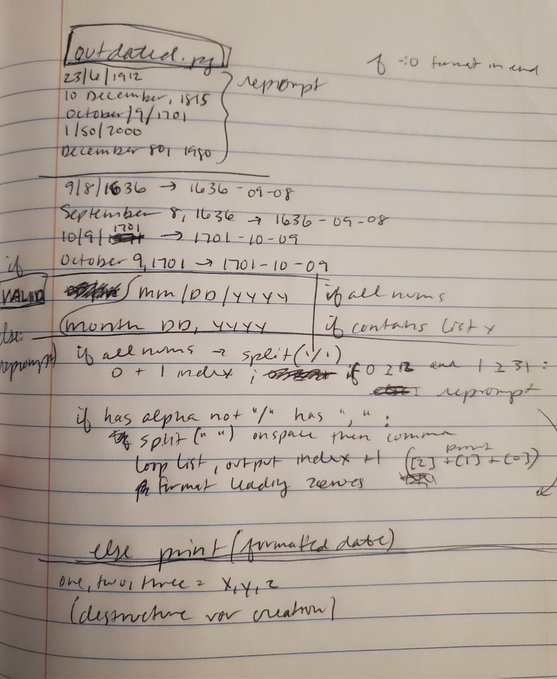 outdated.py
23/6/1912
10 December, 1815
October/9/1701
1/50/2000
December 80, 1980
reprompt
format in end
9/8/1636 → 1636-09-08
September 8, 1636 → 1636-09-08
10/9/1701 → 1701-10-09
October 9, 1701 → 1701-10-09
if
VALID
mm/DD/YYYY if all nums
month DD, YYYY if contains list x
else:
reprompt
if all nums → split('/')
0 + 1 index ; if 0 2 12 and 1 2 31 :
reprompt
if has alpha not "/" has "," :
split(" ") on space then comma
loop list, output index + 1 ([2] + [1] + [0])
print
format leading zeroes
else print(formatted date)
one, two, three = x, y, z
(destructure var creation)